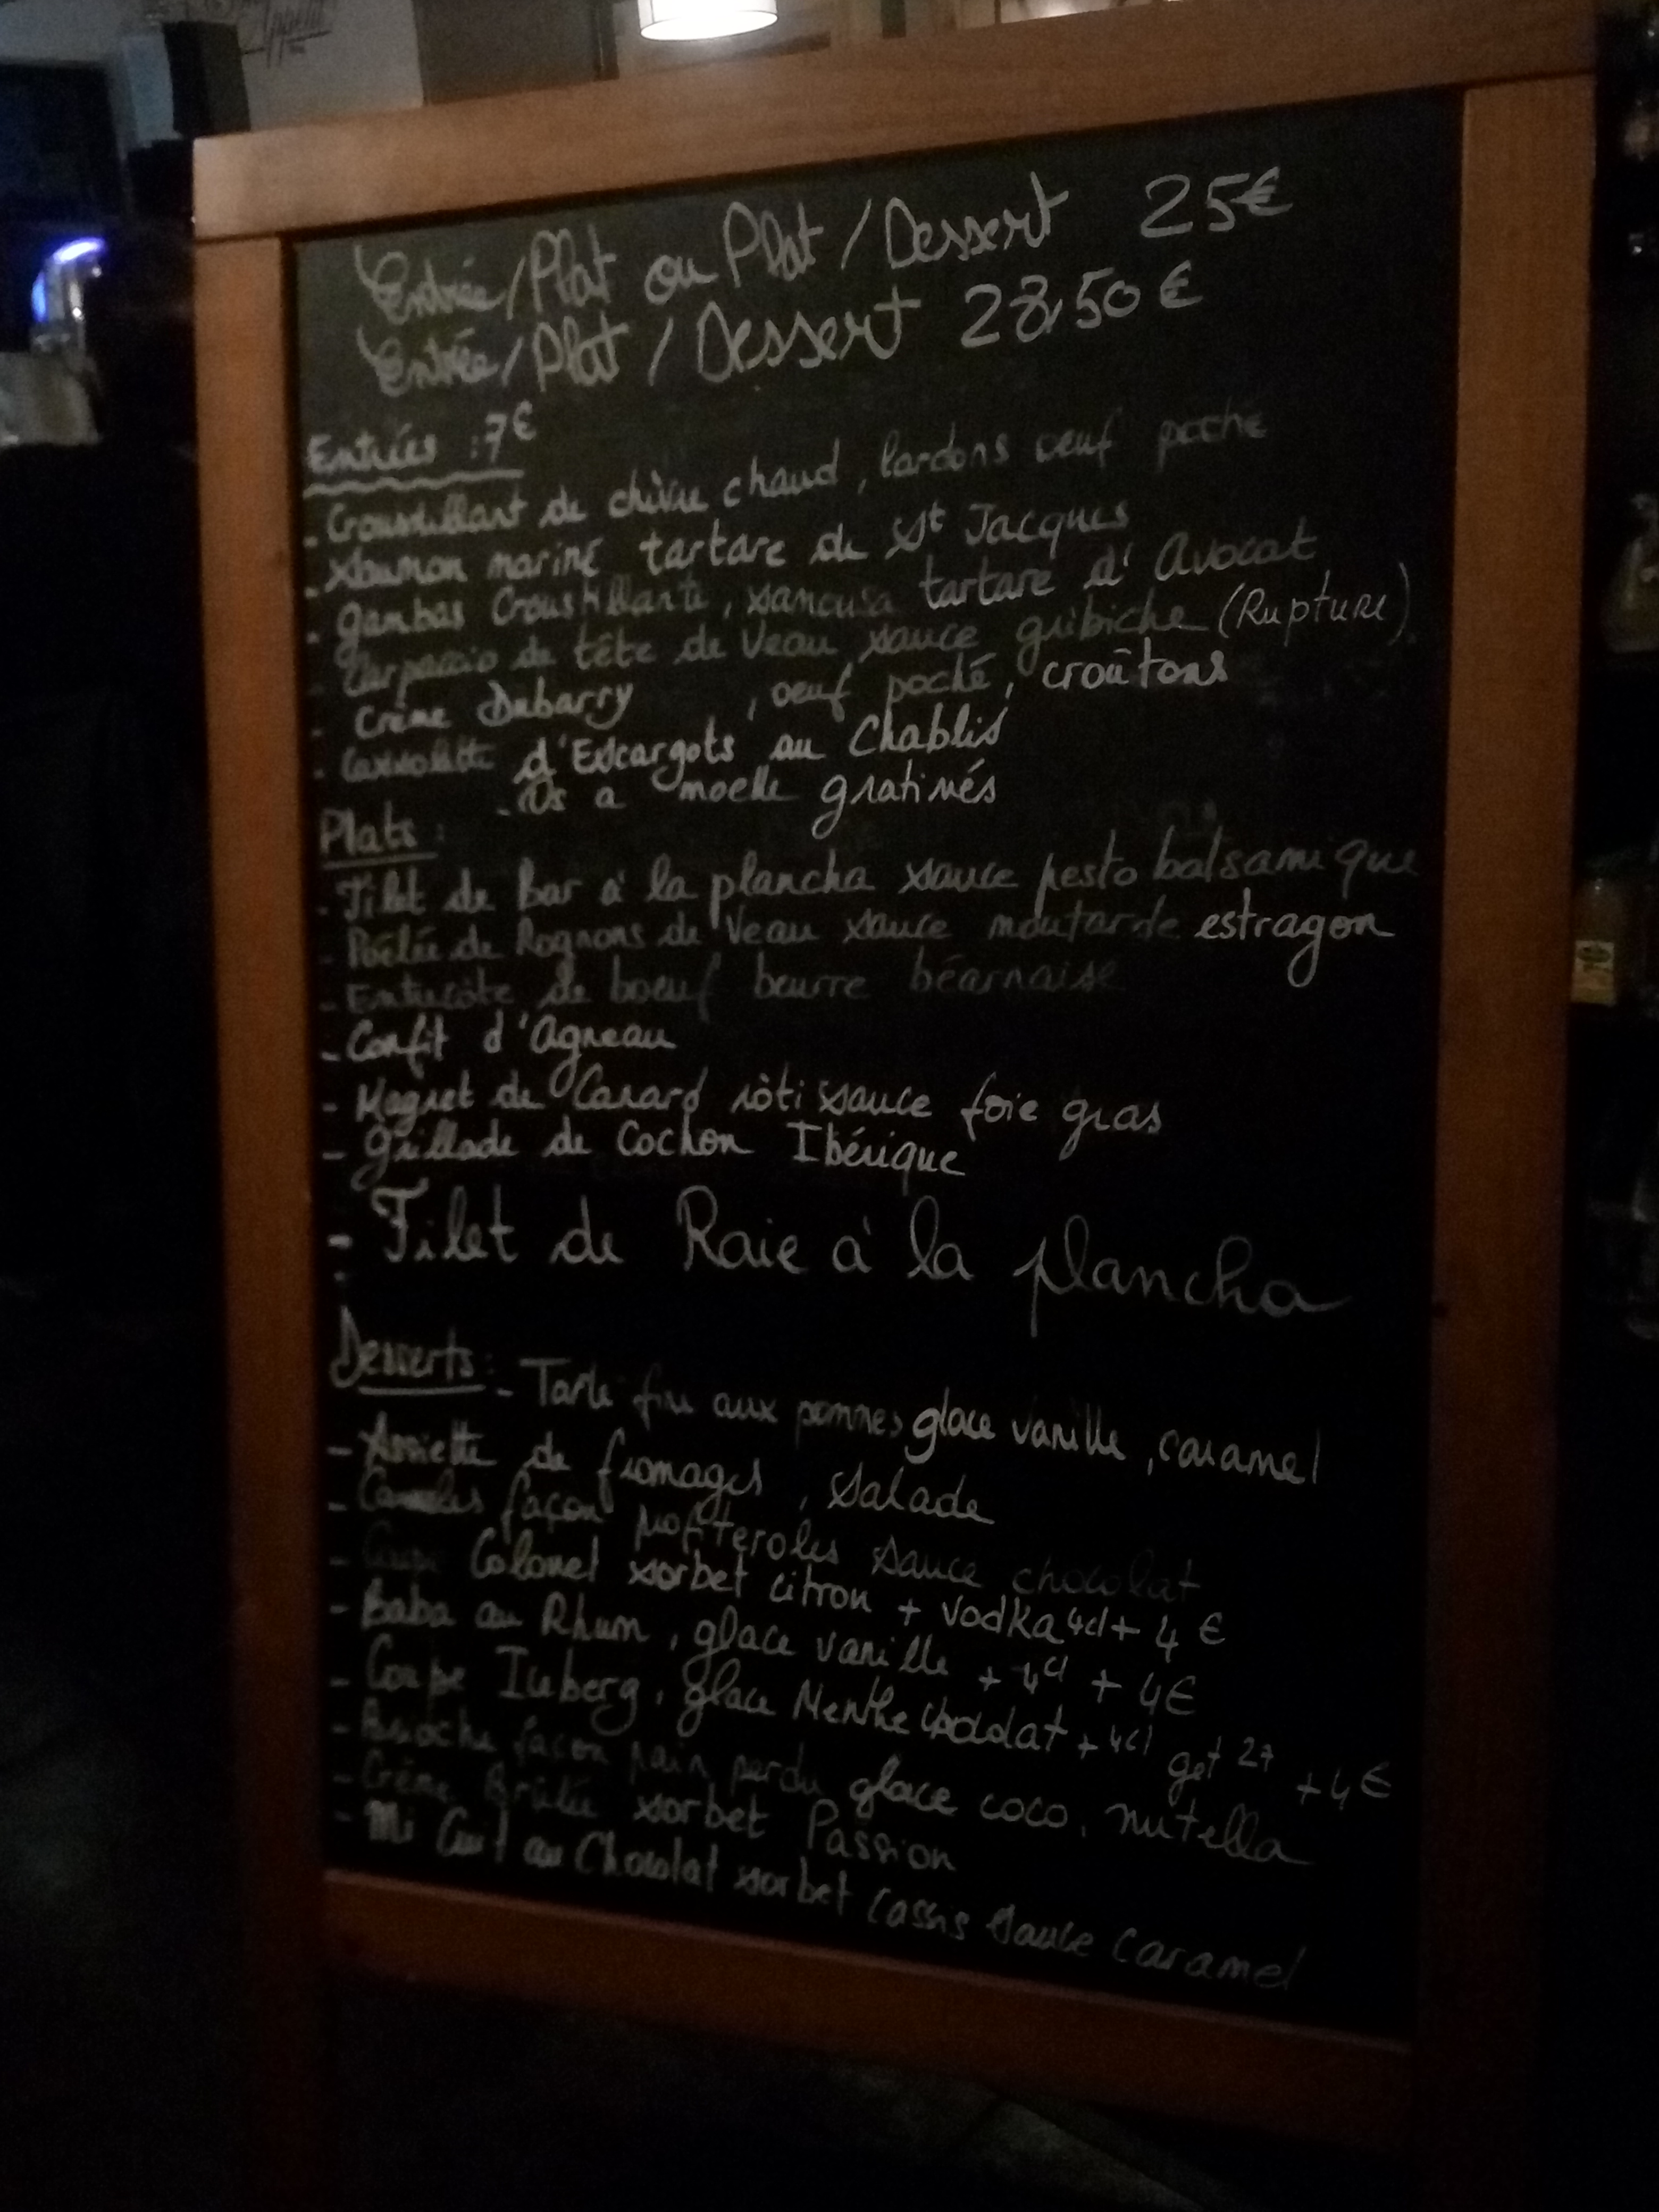 Appétit
Entrée/Plat ou Plat/Dessert 25€
Entrée/Plat/Dessert 28,50€
Entrées : 7€
- Croustillant de chèvre chaud, lardons oeuf poché
- Saumon mariné tartare de St Jacques
- Gambas Croustillante, tartare d'Avocat
- Carpaccio de tête de Veau sauce gribiche (Rupture)
- Crème Dubarry, oeuf poché, croûtons
- Cassolette d'Escargots au Chablis
- Os a moelle gratinés
Plats :
- Filet de Bar à la plancha sauce pesto balsamique
- Poêlée de Rognons de Veau sauce moutarde estragon
- Entrecôte de boeuf beurre béarnaise
- Confit d'Agneau
- Magret de Canard rôti sauce foie gras
- Grillade de Cochon Ibérique
- Filet de Raie à la plancha
Desserts : - Tarte fine aux pommes glace vanille, caramel
- Assiette de fromages, Salade
- façon profiteroles sauce chocolat
- Coupe Colonel sorbet citron + Vodka 4cl + 4€
- Baba au Rhum, glace vanille + 4cl + 4€
- Coupe Iceberg, glace Menthe Chocolat + 4cl get 27 + 4€
- Brioche façon pain perdu glace coco, nutella
- Crème Brûlée sorbet Passion
- Mi Cuit au Chocolat sorbet Cassis Sauce Caramel